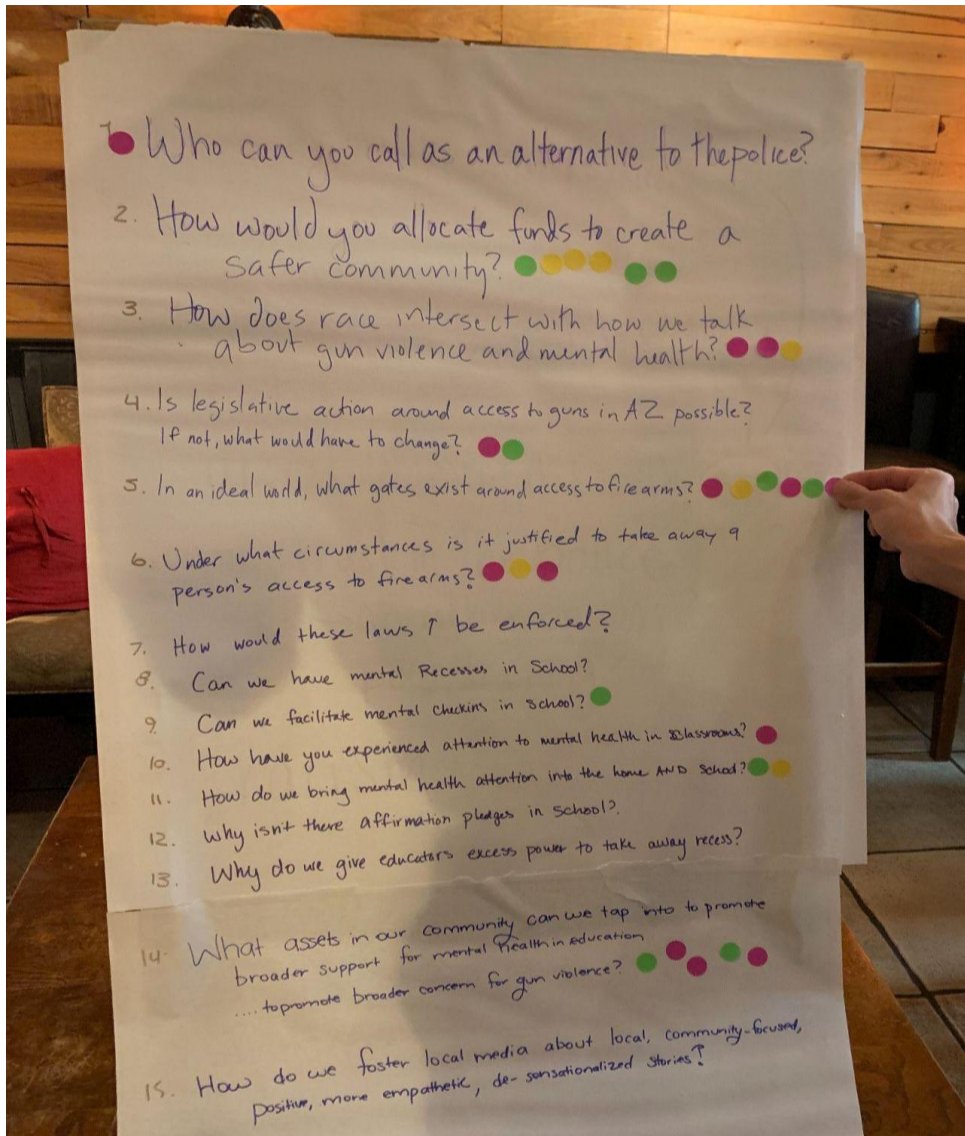 1. Who can you call as an alternative to the police?
2. How would you allocate funds to create a
safer community?
3. How does race intersect with how we talk
about gun violence and mental health?
4. Is legislative action around access to guns in AZ possible?
If not, what would have to change?
5. In an ideal world, what gates exist around access to firearms?
6. Under what circumstances is it justified to take away a
person's access to firearms?
7. How would these laws ↑ be enforced?
8. Can we have mental Recesses in School?
9. Can we facilitate mental checkins in school?
10. How have you experienced attention to mental health in classrooms?
11. How do we bring mental health attention into the home AND School?
12. Why isn't there affirmation pledges in school?
13. Why do we give educators excess power to take away recess?
14. What assets in our community can we tap into to promote
broader support for mental health in education
.... to promote broader concern for gun violence?
15. How do we foster local media about local, community-focused,
positive, more empathetic, de-sensationalized stories?